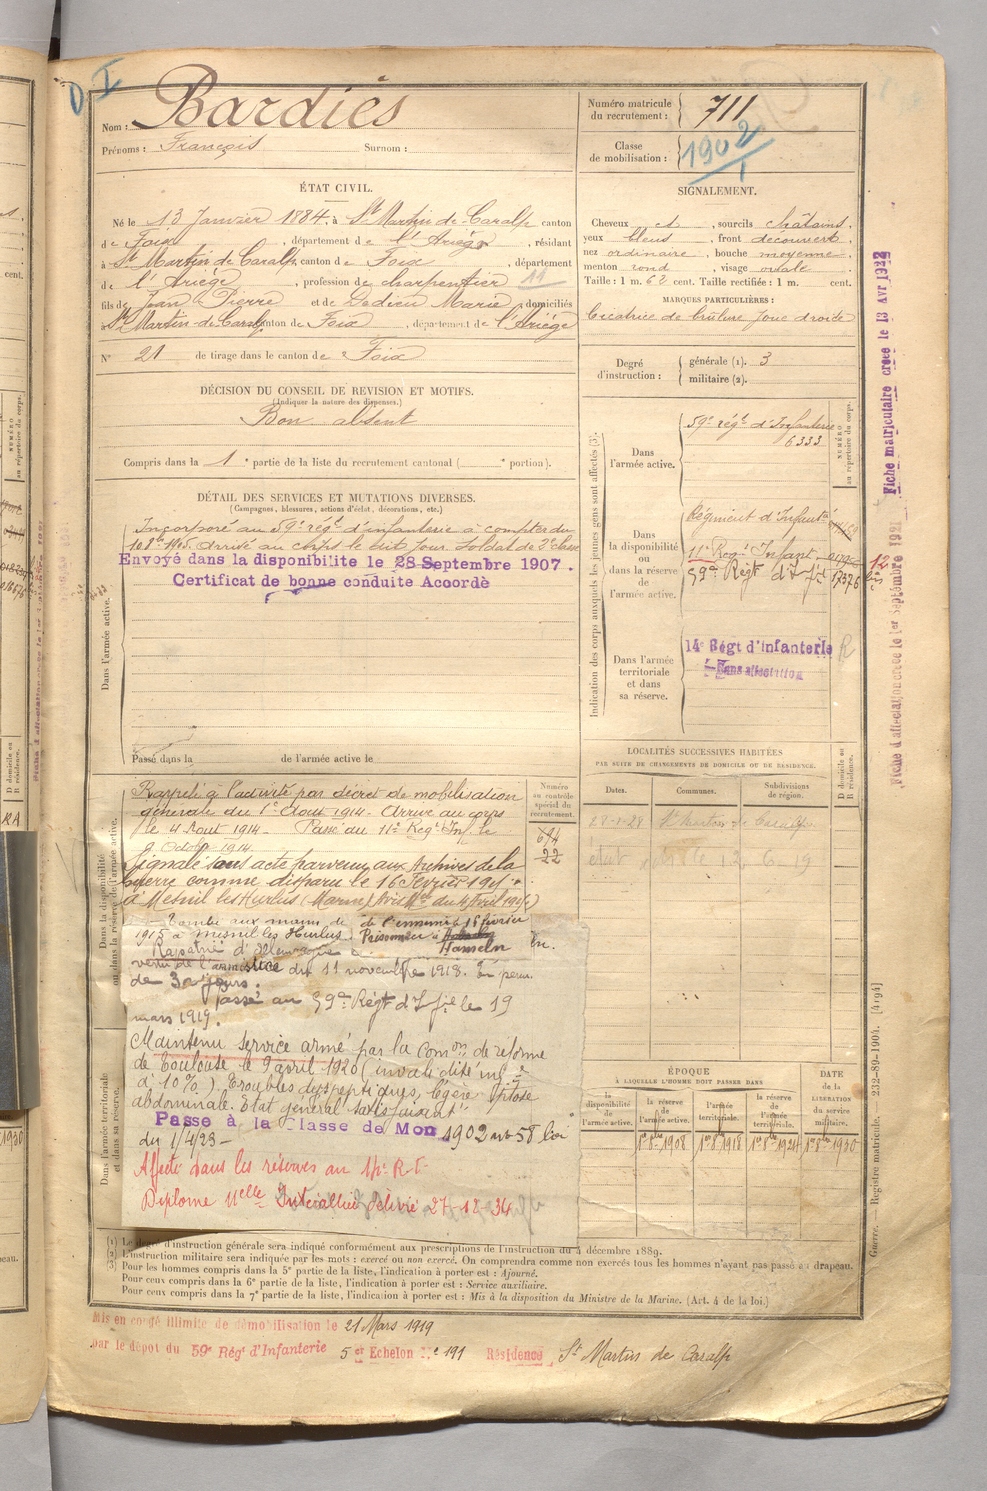 D I
Nom : Bardiès
Prénoms : François Surnom :
Numéro matricule du recrutement : 711
Classe de mobilisation : 1902/1
ÉTAT CIVIL.
Né le 13 Janvier 1884, à St Martin de Caralp, canton
de Foix, département de l'Ariège, résidant
à St Martin de Caralp, canton de Foix, département
de l'Ariège, profession de charpentier
fils de Jean Pierre et de Dedieu Marie, domiciliés
à St Martin de Caralp, canton de Foix, département de l'Ariège
N° 21 de tirage dans le canton de Foix
SIGNALEMENT.
Cheveux et, sourcils châtains,
yeux bleus, front découvert,
nez ordinaire, bouche moyenne,
menton rond, visage ovale.
Taille : 1 m. 62 cent. Taille rectifiée : 1 m. cent.
MARQUES PARTICULIÈRES :
Cicatrice de brûlure joue droite
Degré d'instruction : générale (1). 3
militaire (2).
DÉCISION DU CONSEIL DE REVISION ET MOTIFS.
(Indiquer la nature des dispenses.)
Bon absent
Compris dans la 1e partie de la liste du recrutement cantonal ( e portion).
DÉTAIL DES SERVICES ET MUTATIONS DIVERSES.
(Campagnes, blessures, actions d'éclat, décorations, etc.)
Dans l'armée active.
Incorporé au 59e régt d'infanterie à compter du
10 8bre 1905. Arrivé au corps le dit jour. Soldat de 2e classe
Envoyé dans la disponibilité le 28 Septembre 1907.
Certificat de bonne conduite Accordé
Passé dans la de l'armée active le
Indication des corps auxquels les jeunes gens sont affectés (3).
NUMÉRO au répertoire du corps.
Dans l'armée active.
59e régt d'Infanterie
6333
Dans la disponibilité ou dans la réserve de l'armée active.
Régiment d'Infanterie
11e Regt Infant.
59e Régt d'Inf ie 17376
12 bis
Dans l'armée territoriale et dans sa réserve.
14e Régt d'infanterie R
Sans affectation
Fiche matriculaire créée le 13 Avr 1922
Fiche d'affectation créée le 1er Septembre 192
LOCALITÉS SUCCESSIVES HABITÉES
PAR SUITE DE CHANGEMENTS DE DOMICILE OU DE RÉSIDENCE.
Dates. Communes. Subdivisions de région. D domicile ou R résidence.
St Martin de Caralp
Dans la disponibilité ou dans la réserve de l'armée active.
Numéro au contrôle spécial du recrutement.
694
22
Rappelé à l'activité par décret de mobilisation
générale du 1er Août 1914. Arrivé au corps
le 4 Août 1914. Passé au 11e Regt Inf. le
9 Octobre 1914.
Signalé sans acte parvenu aux Archives de la
Guerre comme disparu le 16 Février 1915
à Mesnil les Hurlus (Marne) Avis Mel du 4 Avril 1915
Tombé aux mains de l'ennemi 16 février
1915 à Mesnil les Hurlus. Prisonnier à
Hameln
Rapatrié d'Allemagne
venu de l'armistice du 11 novembre 1918. En perm.
de 30 jours.
Passé au 59e Régt d'Inf ie le 19
mars 1919.
Dans l'armée territoriale et dans sa réserve.
Maintenu service armé par la Comon de réforme
de Toulouse le 9 avril 1920 (invalidité infre
à 10%) Troubles dyspeptiques, légère ptose
abdominale. Etat général satisfaisant"
Passé à la Classe de Mon 1902 art 58 loi
du 1/4/23 -
Affecté dans les réserves au
Diplome Médelle Interalliée délivré 27-12-34
ÉPOQUE
À LAQUELLE L'HOMME DOIT PASSER DANS
la disponibilité de l'armée active. la réserve de l'armée active. l'armée territoriale. la réserve de l'armée territoriale. DATE de la LIBÉRATION du service militaire.
1er 8bre 1908 1er 8bre 1918 1er 8bre 1924 1er 8bre 1930
Guerre. — Registre matricule. 232-89-1904. [4194]
(1) Le degré d'instruction générale sera indiqué conformément aux prescriptions de l'instruction du 4 décembre 1889.
(2) L'instruction militaire sera indiquée par les mots : exercé ou non exercé. On comprendra comme non exercés tous les hommes n'ayant pas passé au drapeau.
(3) Pour les hommes compris dans la 5e partie de la liste, l'indication à porter est : Ajourné.
Pour ceux compris dans la 6e partie de la liste, l'indication à porter est : Service auxiliaire.
Pour ceux compris dans la 7e partie de la liste, l'indication à porter est : Mis à la disposition du Ministre de la Marine. (Art. 4 de la loi.)
Mis en congé illimité de démobilisation le 21 Mars 1919
par le dépôt du 59e Régt d'Infanterie 5e Echelon N° 191 Résidence St Martin de Caralp